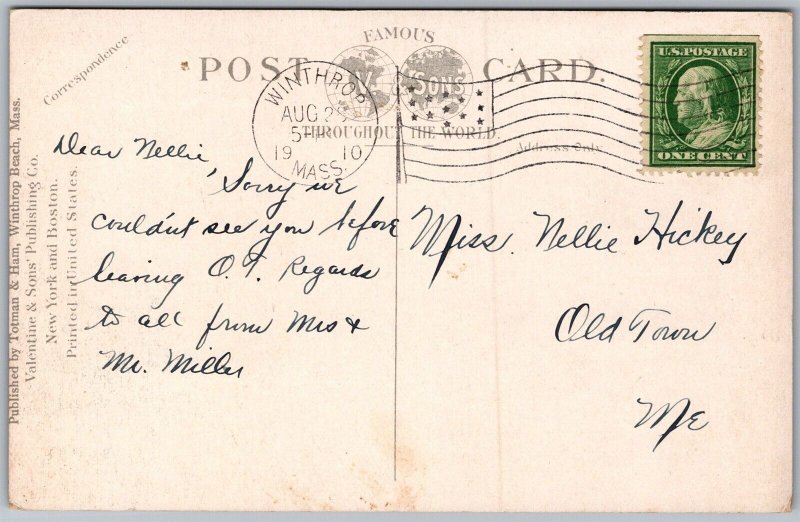 FAMOUS
POST CARD.
& SONS
THROUGHOUT THE WORLD.
Correspondence
Address Only
WINTHROP
AUG 2
5
19 10
MASS.
U.S. POSTAGE
ONE CENT
Dear Nellie,
Sorry we
couldn't see you before
leaving O.T. Regards
to all from Mrs &
Mr. Miller
Miss. Nellie Hickey
Old Town
Me
Published by Totman & Ham, Winthrop Beach, Mass.
Valentine & Sons' Publishing Co.
New York and Boston.
Printed in United States.